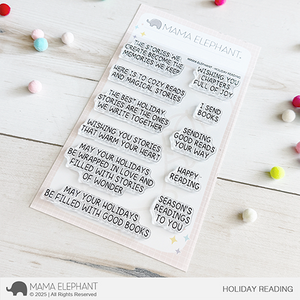 MAMA ELEPHANT.
THE STORIES WE
CREATE BECOME THE
MEMORIES WE KEEP
HERE IS TO COZY READS
AND MAGICAL STORIES
THE BEST HOLIDAY
STORIES ARE THE ONES
WE WRITE TOGETHER
WISHING YOU STORIES
THAT WARM YOUR HEART
MAY YOUR HOLIDAYS
BE WRAPPED IN LOVE AND
FILLED WITH STORIES
OF WONDER
MAY YOUR HOLIDAYS
BE FILLED WITH GOOD BOOKS
WISHING YOU
CHAPTERS
FULL OF JOY
I SEND
BOOKS
SENDING
GOOD READS
YOUR WAY
HAPPY
READING
SEASON'S
READINGS
TO YOU
MAMA ELEPHANT
© 2025 | All Rights Reserved
HOLIDAY READING